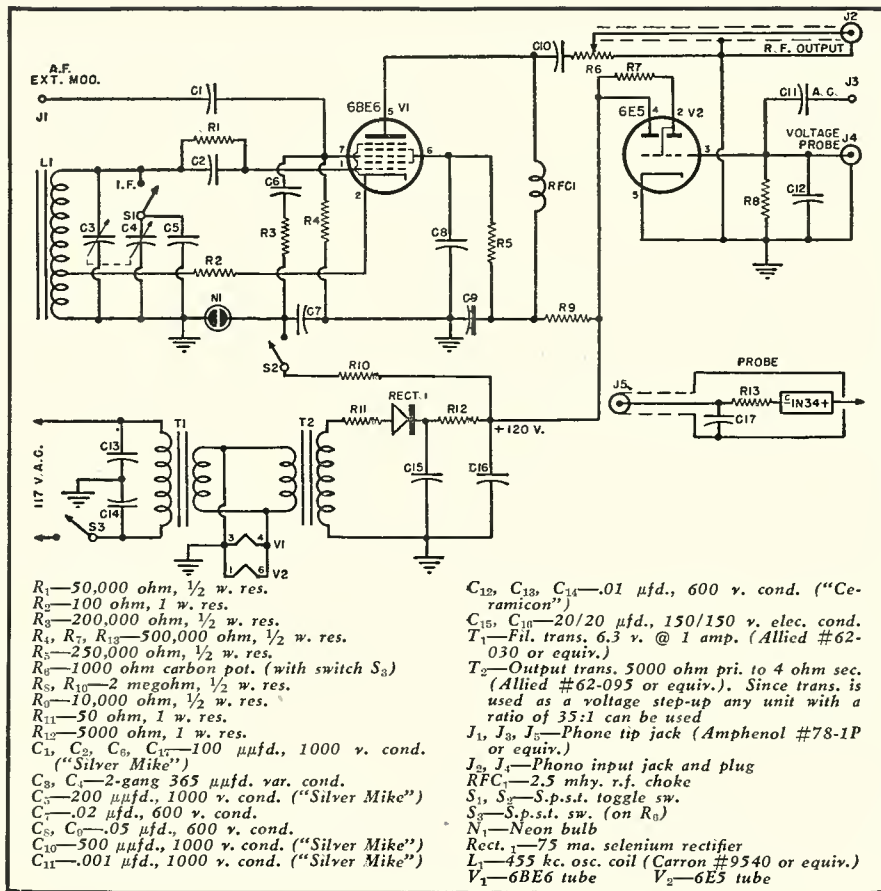 A.F.
EXT. MOD.
J1
C1
R1
C2
L1
I.F.
S1
C3
C4
C5
R2
N1
C6
R3
R4
C7
6BE6
5 V1
7
1
2
6
C8
R5
C9
RFC1
R9
C10
R6
R7
J2
R.F. OUTPUT
6E5
4
2 V2
3
5
C11
A.C.
J3
VOLTAGE
PROBE
J4
R8
C12
S2
R10
PROBE
J5
R13
C17
- IN34+
117 V.A.C.
C13
C14
S3
T1
T2
3 4 V1
1 6 V2
R11
RECT. 1
R12
+120 V.
C15
C16
R₁—50,000 ohm, ½ w. res.
R₂—100 ohm, 1 w. res.
R₃—200,000 ohm, ½ w. res.
R₄, R₇, R₁₃—500,000 ohm, ½ w. res.
R₅—250,000 ohm, ½ w. res.
R₆—1000 ohm carbon pot. (with switch S₃)
R₈, R₁₀—2 megohm, ½ w. res.
R₉—10,000 ohm, ½ w. res.
R₁₁—50 ohm, 1 w. res.
R₁₂—5000 ohm, 1 w. res.
C₁, C₂, C₆, C₁₇—100 μμfd., 1000 v. cond.
("Silver Mike")
C₃, C₄—2-gang 365 μμfd. var. cond.
C₅—200 μμfd., 1000 v. cond. ("Silver Mike")
C₇—.02 μfd., 600 v. cond.
C₈, C₉—.05 μfd., 600 v. cond.
C₁₀—500 μμfd., 1000 v. cond. ("Silver Mike")
C₁₁—.001 μfd., 1000 v. cond. ("Silver Mike")
C₁₂, C₁₃, C₁₄—.01 μfd., 600 v. cond. ("Ce-
ramicon")
C₁₅, C₁₆—20/20 μfd., 150/150 v. elec. cond.
T₁—Fil. trans. 6.3 v. @ 1 amp. (Allied #62-
030 or equiv.)
T₂—Output trans. 5000 ohm pri. to 4 ohm sec.
(Allied #62-095 or equiv.). Since trans. is
used as a voltage step-up any unit with a
ratio of 35:1 can be used
J₁, J₃, J₅—Phone tip jack (Amphenol #78-1P
or equiv.)
J₂, J₄—Phono input jack and plug
RFC₁—2.5 mhy. r.f. choke
S₁, S₂—S.p.s.t. toggle sw.
S₃—S.p.s.t. sw. (on R₆)
N₁—Neon bulb
Rect. ₁—75 ma. selenium rectifier
L₁—455 kc. osc. coil (Carron #9540 or equiv.)
V₁—6BE6 tube V₂—6E5 tube